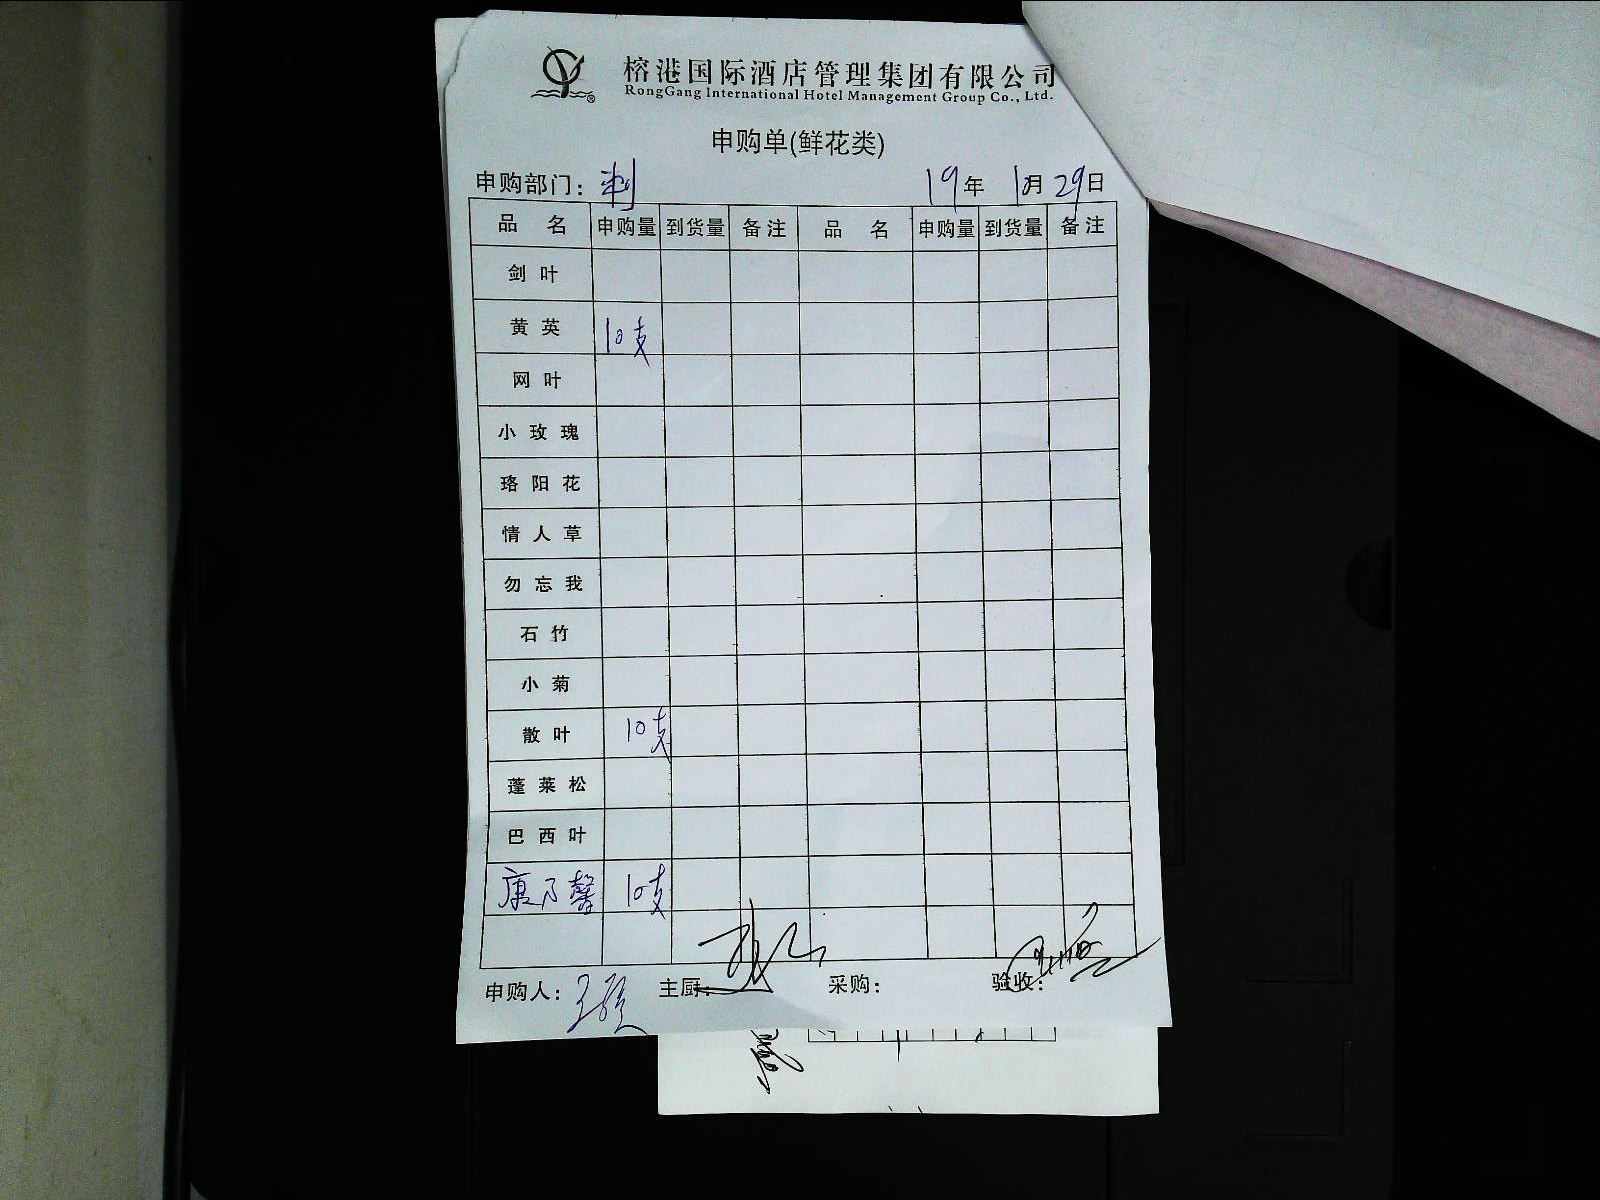 榕港国际酒店管理集团有限公司
RongGang International Hotel Management Group Co., Ltd.
申购单(鲜花类)
申购部门: 19年 10月 29日
品名 申购量 到货量 备注 品名 申购量 到货量 备注
剑叶
黄英 10支
网叶
小玫瑰
珞阳花
情人草
勿忘我
石竹
小菊
散叶 10支
蓬莱松
巴西叶
康乃馨 10支
申购人: 主厨: 采购: 验收: